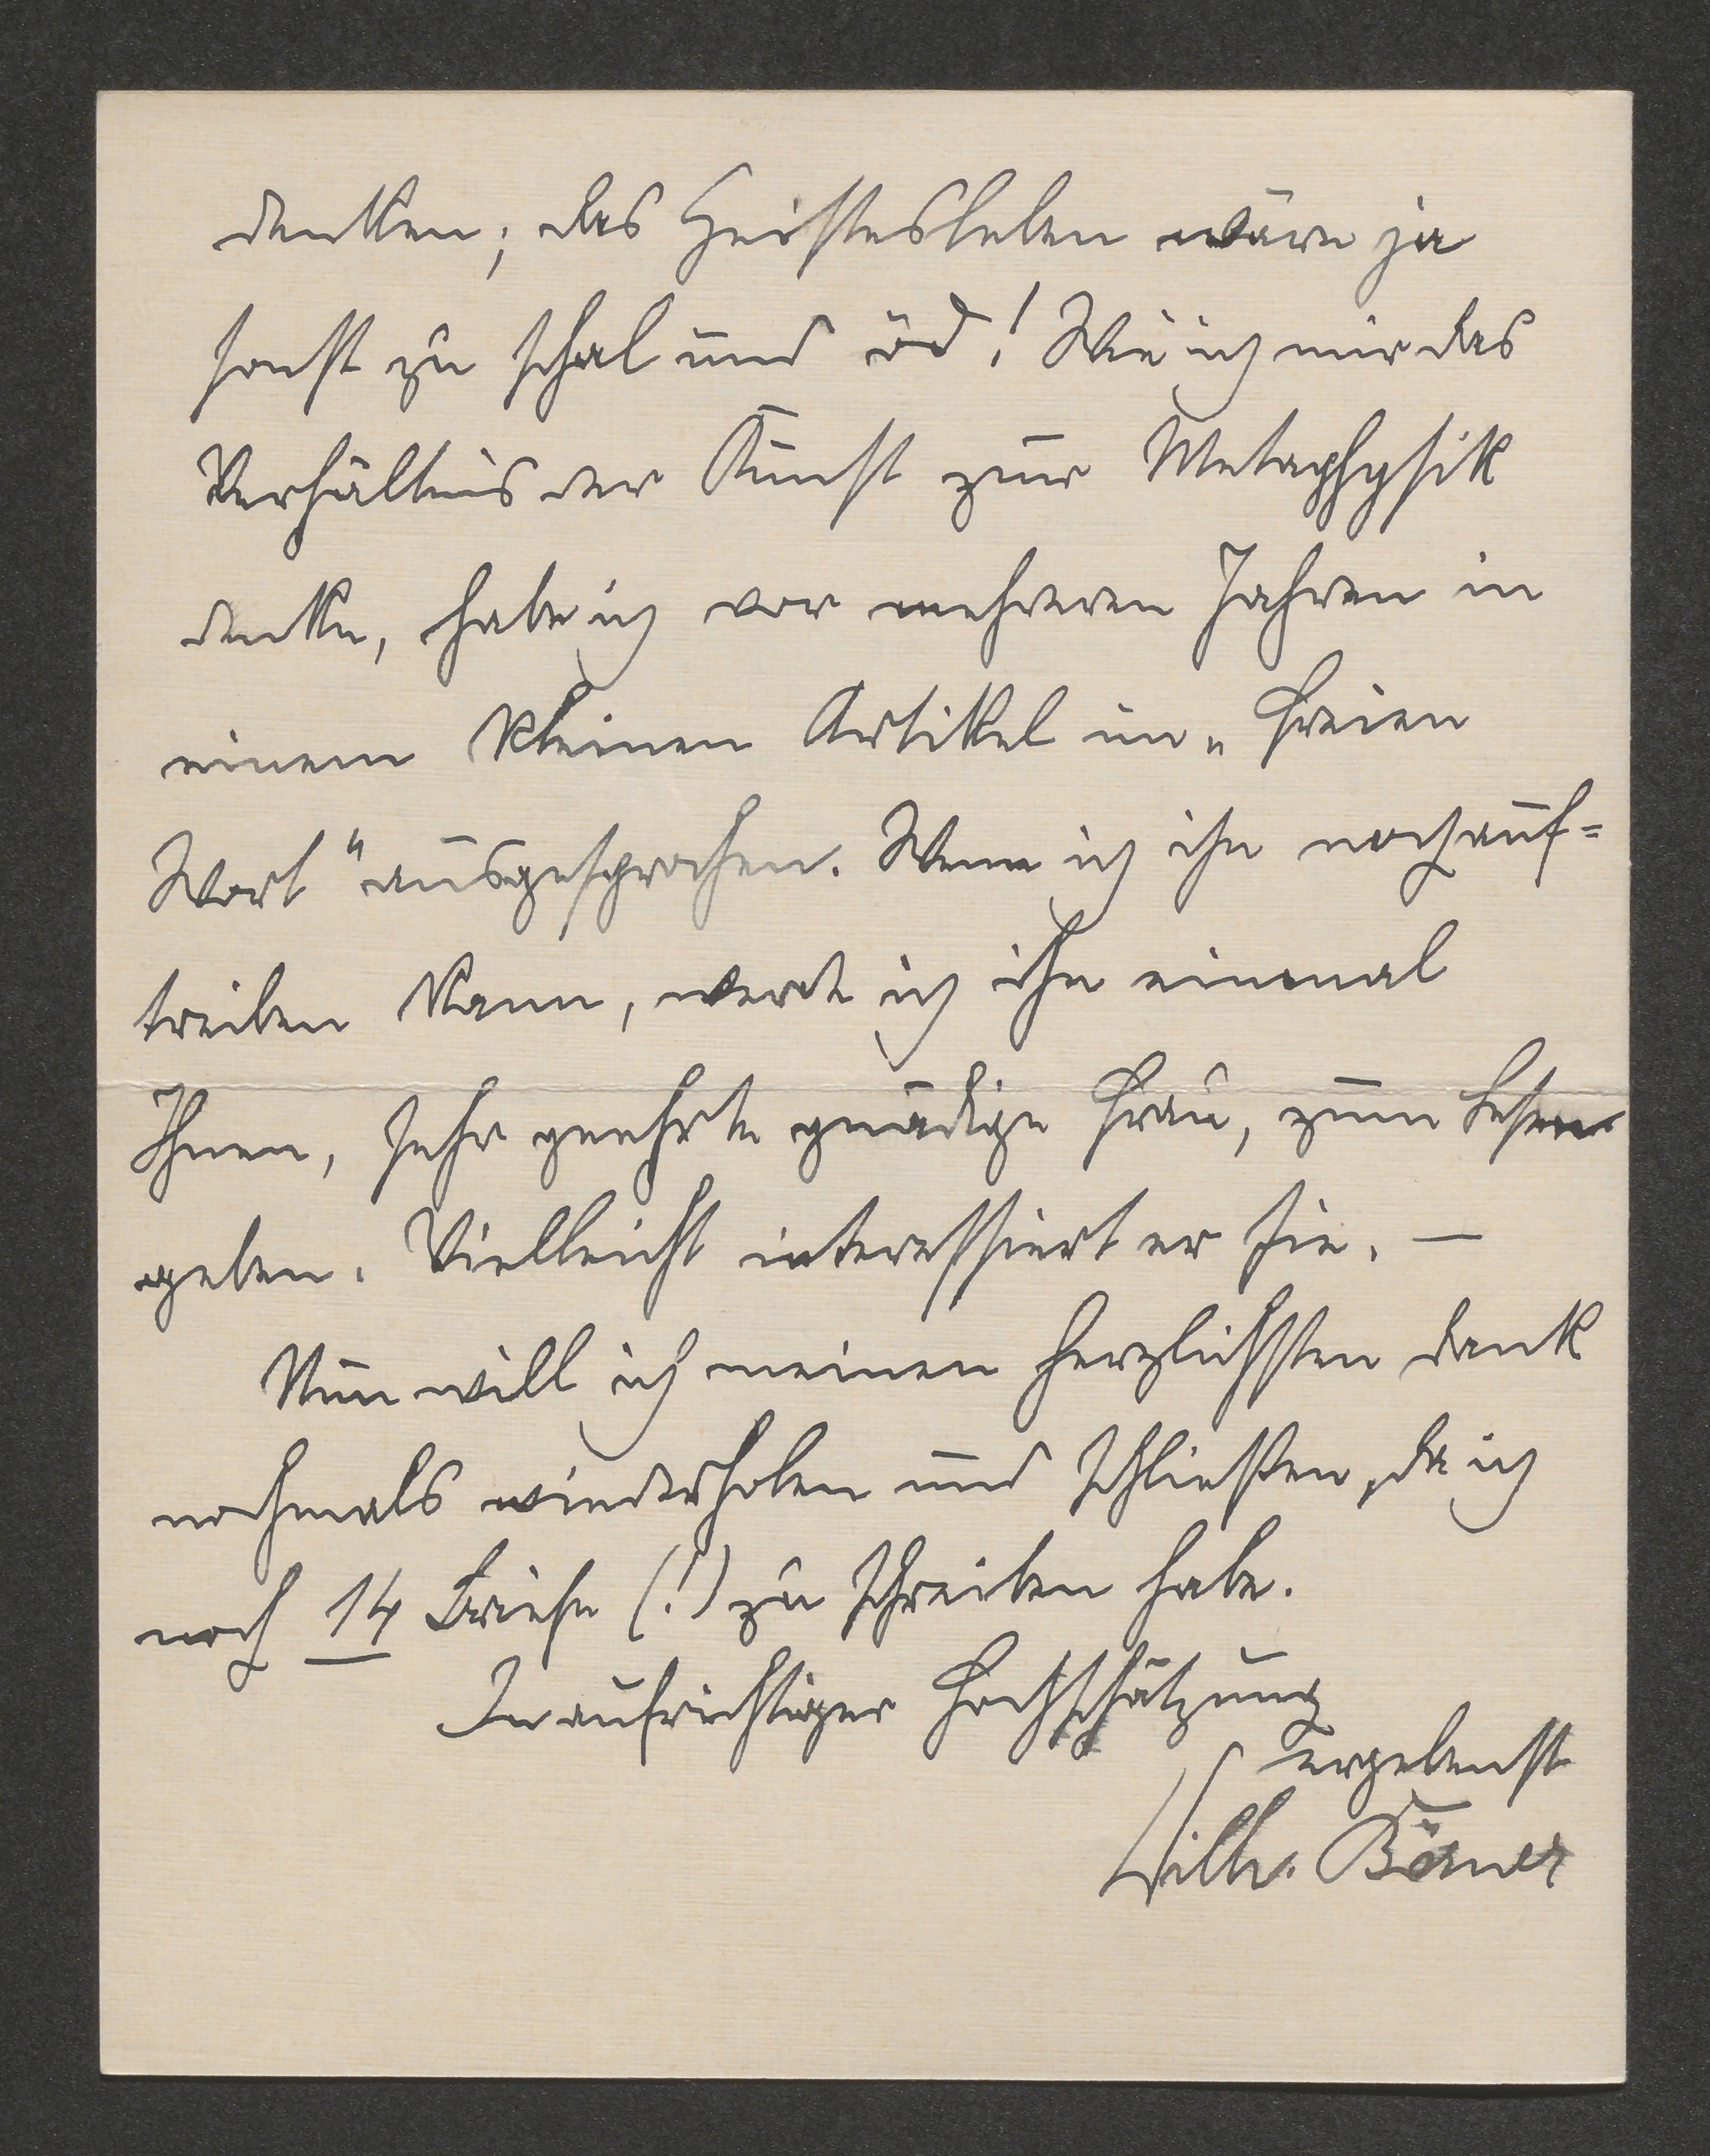 denken; das Geistesleben wäre ja
sonst zu schal und öd! Wie ich mir das
Verhältnis der Kunst zur Metaphysik
denke, habe ich vor mehreren Jahren in
einem kleinen Artikel im „Freien
Wort“ ausgesprochen. Wenn ich ihn noch auf-
treiben kann, werde ich ihn einmal
Ihnen, sehr geehrte gnädige Frau, zum Lesen
geben. Vielleicht interessiert er Sie. —
Nun will ich meinen herzlichsten Dank
nochmals wiederholen und schließen, da ich
noch 14 Briefe (!) zu schreiben habe.
In aufrichtiger Hochschätzung
ergebenst
Wilh. Börner